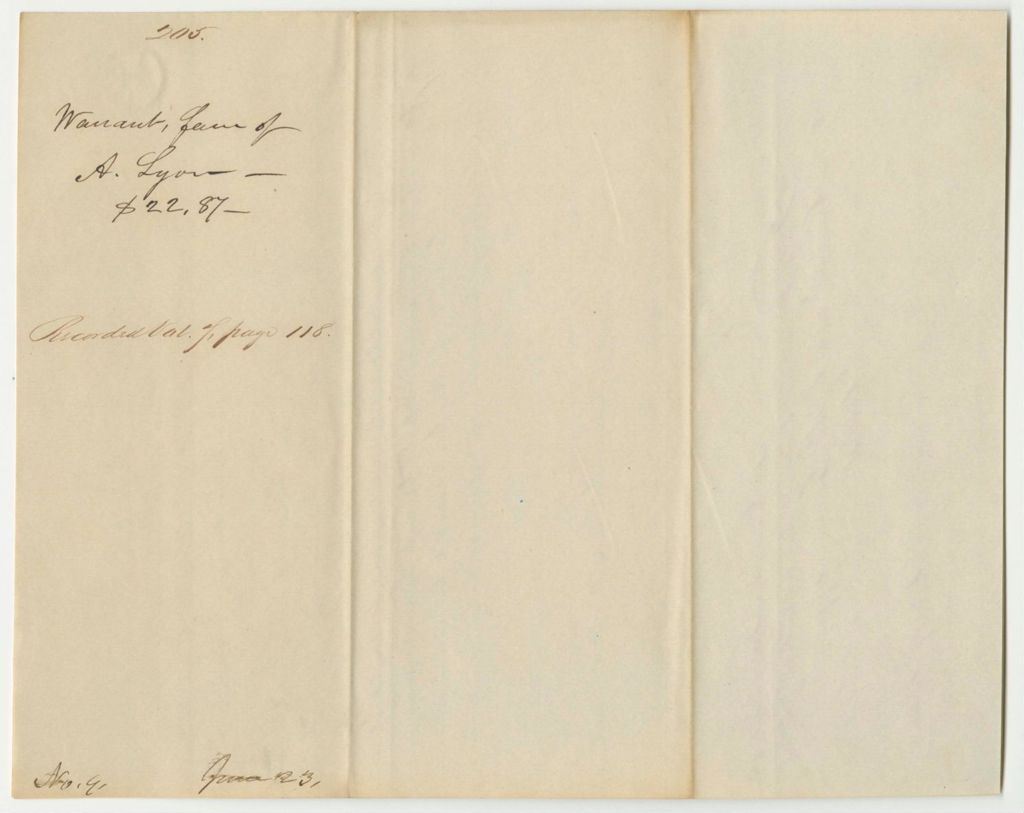 205.
Warrant, favr of
A. Lyon —
$22,87—
Recorded Vol. 7, page 118.
No. 9,
June 23,